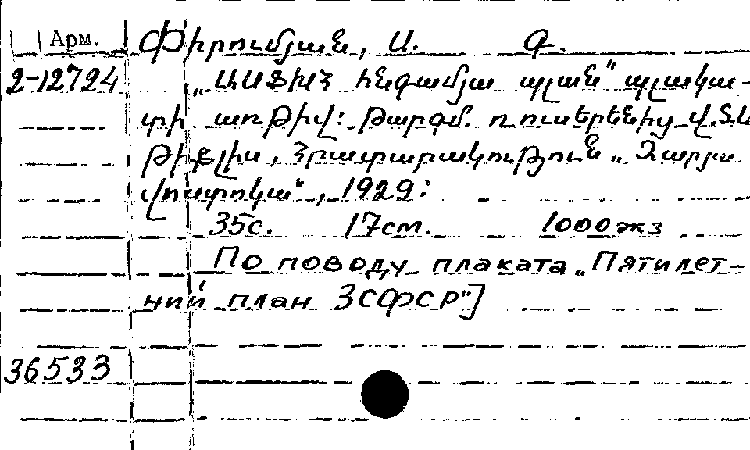 Арм. Փիրումյան, Ա. Գ.
2-12724 „ԱՍՖԽՀ հնգամյա պլան" պլակա-
տի առթիվ: Թարգմ. ռուսերենից Վ.Տ.
Թիֆլիս, Հրատարակություն „Զարյա
վոստոկա", 1929:
35с. 17см. 1000 экз
По поводу плаката „Пятилет-
ний план ЗСФСР"]
36533